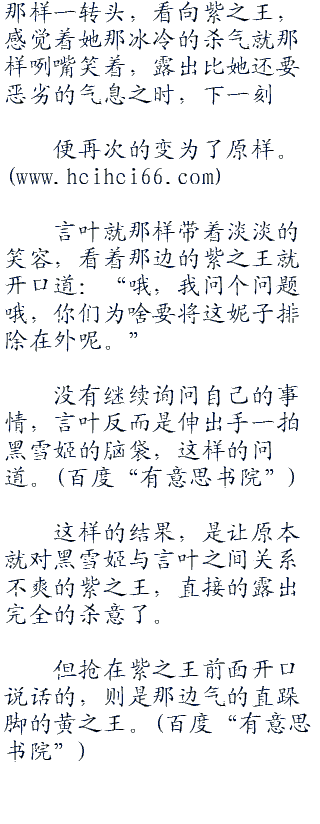 那样一转头，看向紫之王，
感觉着她那冰冷的杀气就那
样咧嘴笑着，露出比她还要
恶劣的气息之时，下一刻
便再次的变为了原样。
(www.hcihci66.com)
言叶就那样带着淡淡的
笑容，看着那边的紫之王就
开口道：“哦，我问个问题
哦，你们为啥要将这妮子排
除在外呢。”
没有继续询问自己的事
情，言叶反而是伸出手一拍
黑雪姬的脑袋，这样的问
道。(百度“有意思书院”)
这样的结果，是让原本
就对黑雪姬与言叶之间关系
不爽的紫之王，直接的露出
完全的杀意了。
但抢在紫之王前面开口
说话的，则是那边气的直跺
脚的黄之王。(百度“有意思
书院”)